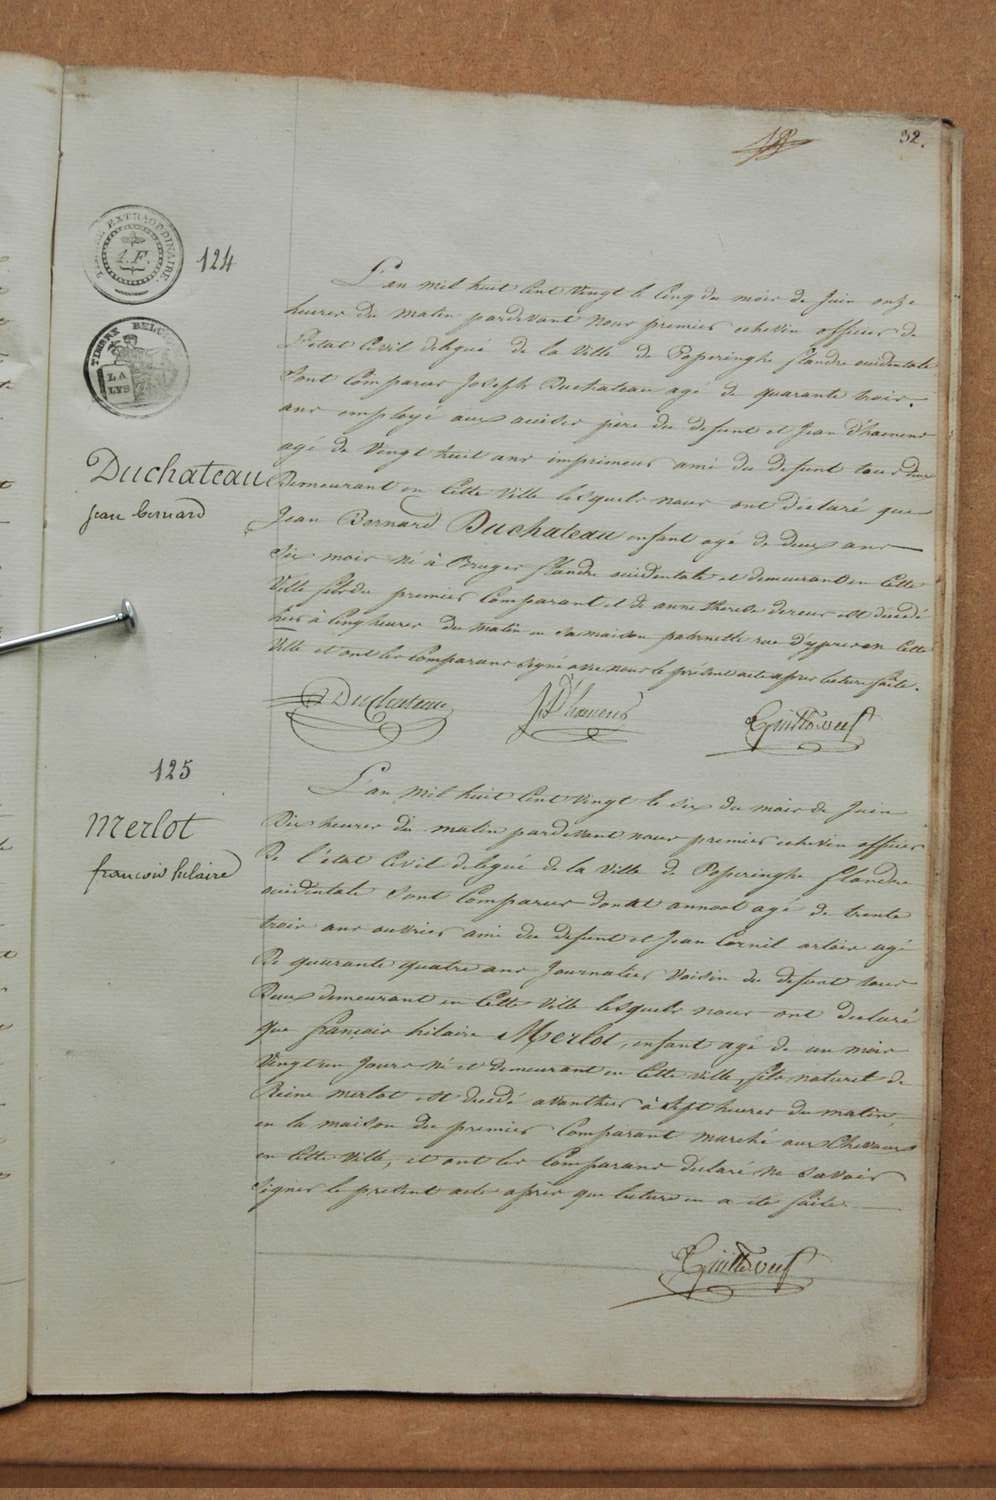 32.
TIMBRE EXTRAORDINAIRE.
A.F.
124
TIMBRE BELGIQUE
LA
LYS
Duchateau
jean bernard
L'an mil huit Cent Vingt le Cinq du mois de Juin onze
heures du matin pardevant Nous premier echevin officier de
l'Etat Civil delegué de la Ville de Poperinghe flandre occidentale
Sont Comparus Joseph Duchateau agé de quarante trois
ans employé aux accises père du defunt et Jean D'haenens
agé de Vingt huit ans imprimeur ami du defunt tous deux
Demeurant en Cette Ville lesquels nous ont déclaré que
Jean Bernard Duchateau enfant agé de deux ans
Six mois Né à Bruges flandre occidentale et demeurant en Cette
Ville fils du premier Comparant et de anne therese est decedé
hier à Cinq heures du Matin en Sa maison paternelle rue d'ypres en Cette
Ville et ont les Comparans Signé avec nous le présent acte apres lecture faite.
Duchateau
125
Merlot
francois hilaire
L'an Mil huit Cent Vingt le Six du mois de Juin
Dix heures du matin pardevant nous premier echevin officier
De l'état Civil delegué de la Ville de Poperinghe flandre
occidentale Sont Comparus donat agé de trente
trois ans ouvrier ami du defunt et Jean Cornil artois agé
De quarante quatre ans Journalier Voisin du defunt tous
Deux demeurant en Cette Ville lesquels nous ont declaré
que françois hilaire Merlot, enfant agé de un mois
Vingt un Jours Né et demeurant en Cette Ville, fils naturel de
Reine merlot est decedé avanthier à Sept heures du matin,
en la maison du premier Comparant marché aux Chevaux
en Cette Ville, et ont les Comparans déclaré Ne Savoir
Signer le présent acte après que lecture en a été faite.